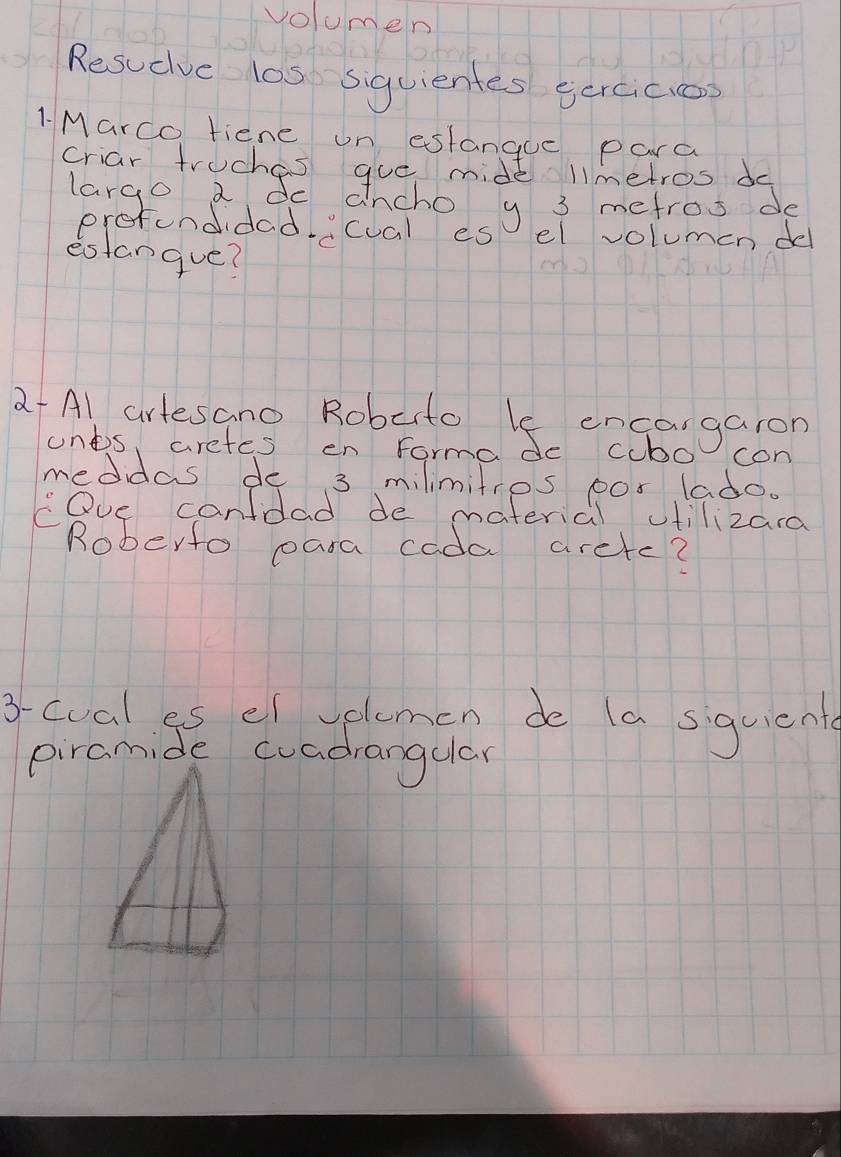 volumen
Resuelve los siguientes ejercicios
1- Marco tiene un estanque para
criar truchas que mide 11 metros de
largo 2 de ancho y 3 metros de
profundidad. ¿cual es el volumen del
estanque?
2- Al artesano Roberto le encargaron
unos aretes en Forma de cubo con
medidas de 3 milimitros por lado.
¿Que cantidad de material utilizara
Roberto para cada arete?
3- cual es el volumen de la siguiente
piramide cuadrangular